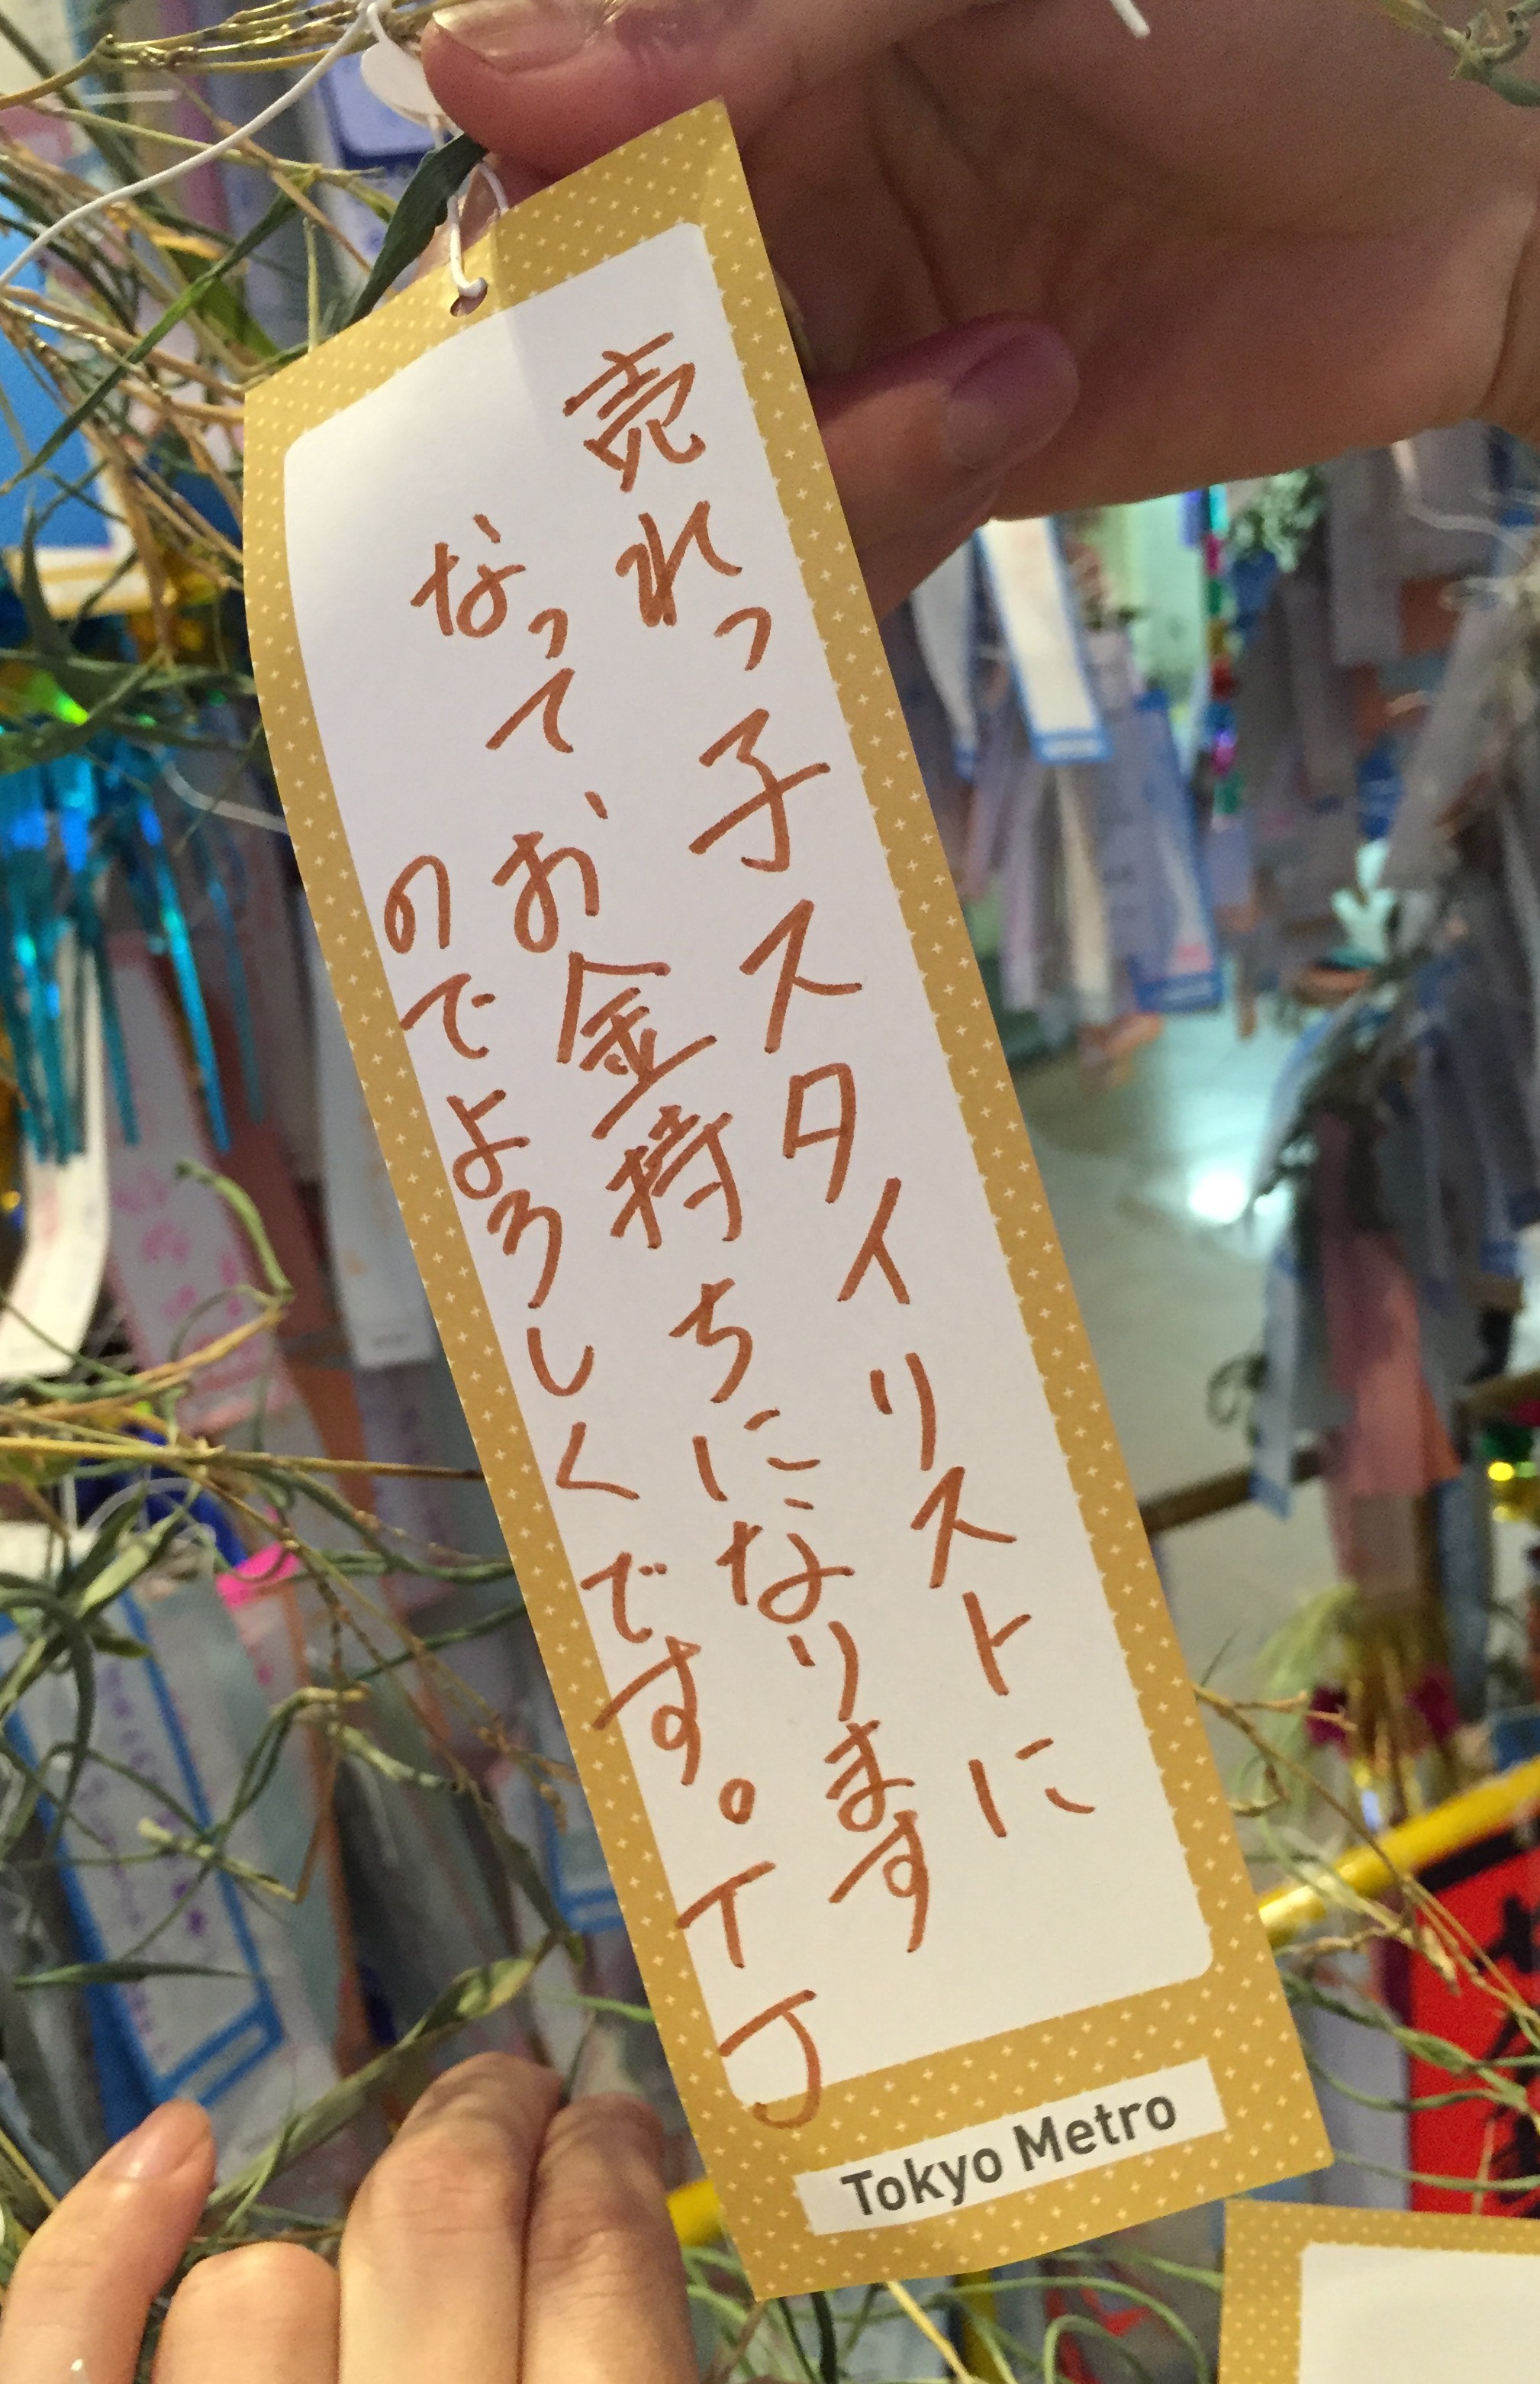 売れっ子スタイリストに
なって、お金持ちになります
のでよろしくです。イJ
Tokyo Metro